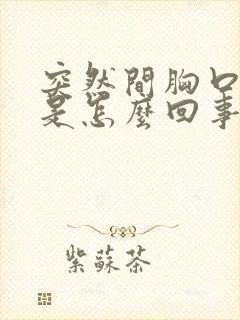 突然間胸口
是怎麼回事
紫蘇茶